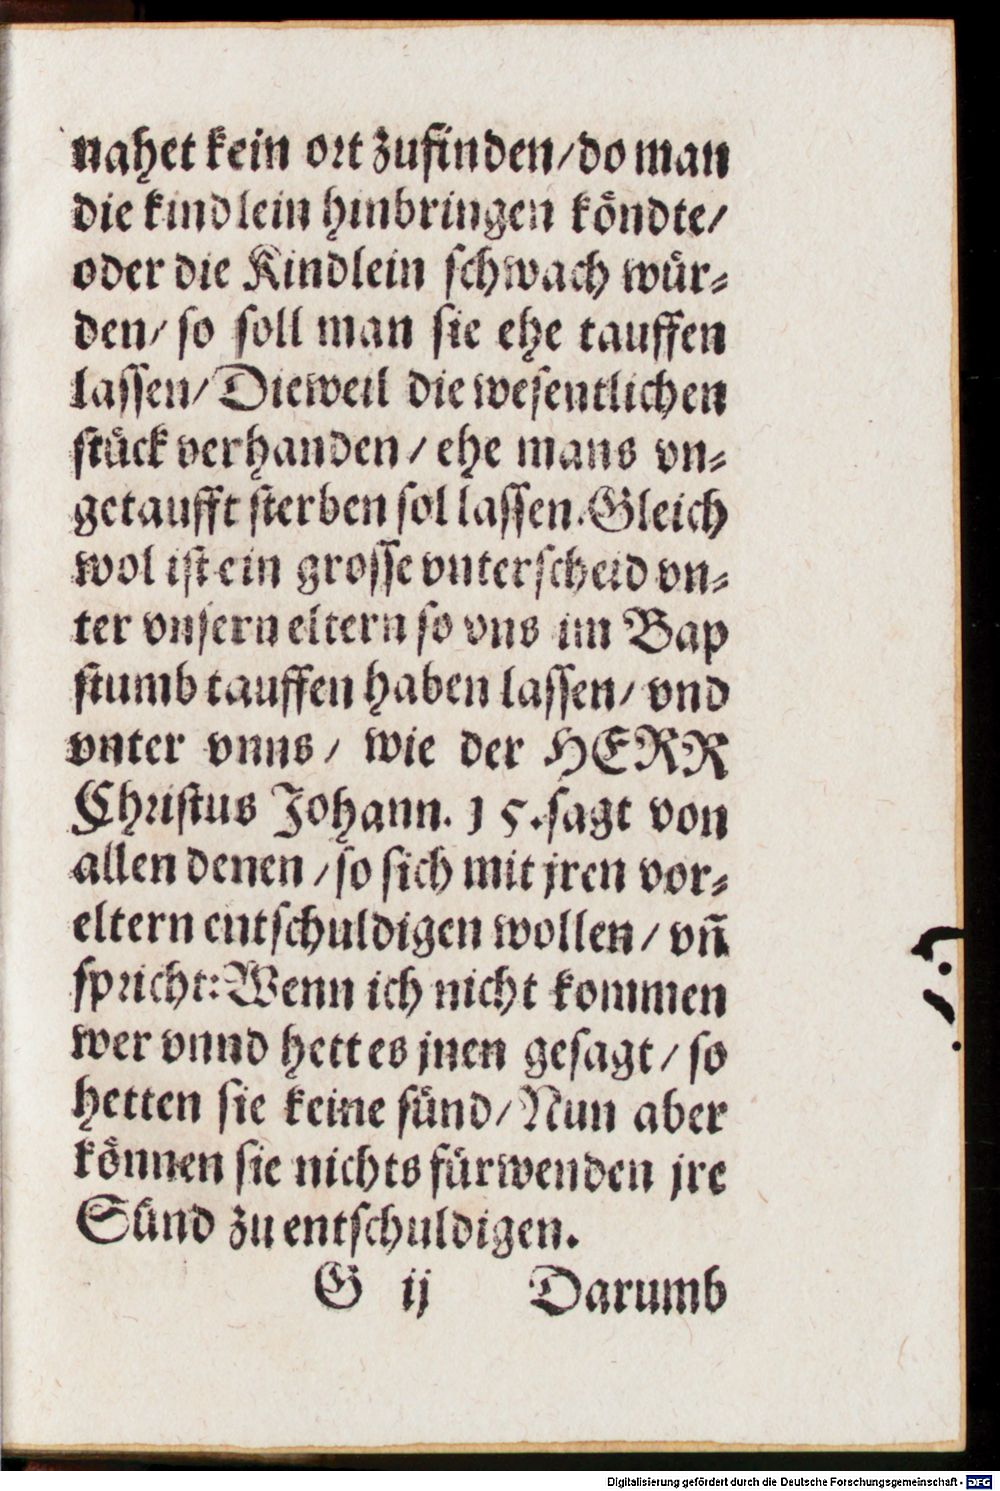 nahet kein ort zufinden/do man
die kindlein hinbringen köndte/
oder die Kindlein schwach wür⸗
den/ so soll man sie ehe tauffen
lassen/ Dieweil die wesentlichen
stück verhanden/ ehe mans vn⸗
getaufft sterben sol lassen. Gleich
wol ist ein grosse vnterscheid vn⸗
ter vnsern eltern so vns im Bap
stumb tauffen haben lassen/ vnd
vnter vnns/ wie der HERR
Christus Johann. 15. sagt von
allen denen/ so sich mit jren vor⸗
eltern entschuldigen wollen/ vñ
spricht: Wenn ich nicht kommen
wer vnnd hett es jnen gesagt/ so
hetten sie keine sünd/ Nun aber
können sie nichts fürwenden jre
Sünd zu entschuldigen.
G ij Darumb
Digitalisierung gefördert durch die Deutsche Forschungsgemeinschaft - DFG